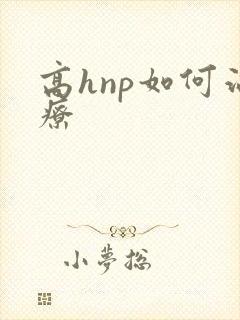 高hnp如何治
療
小夢總